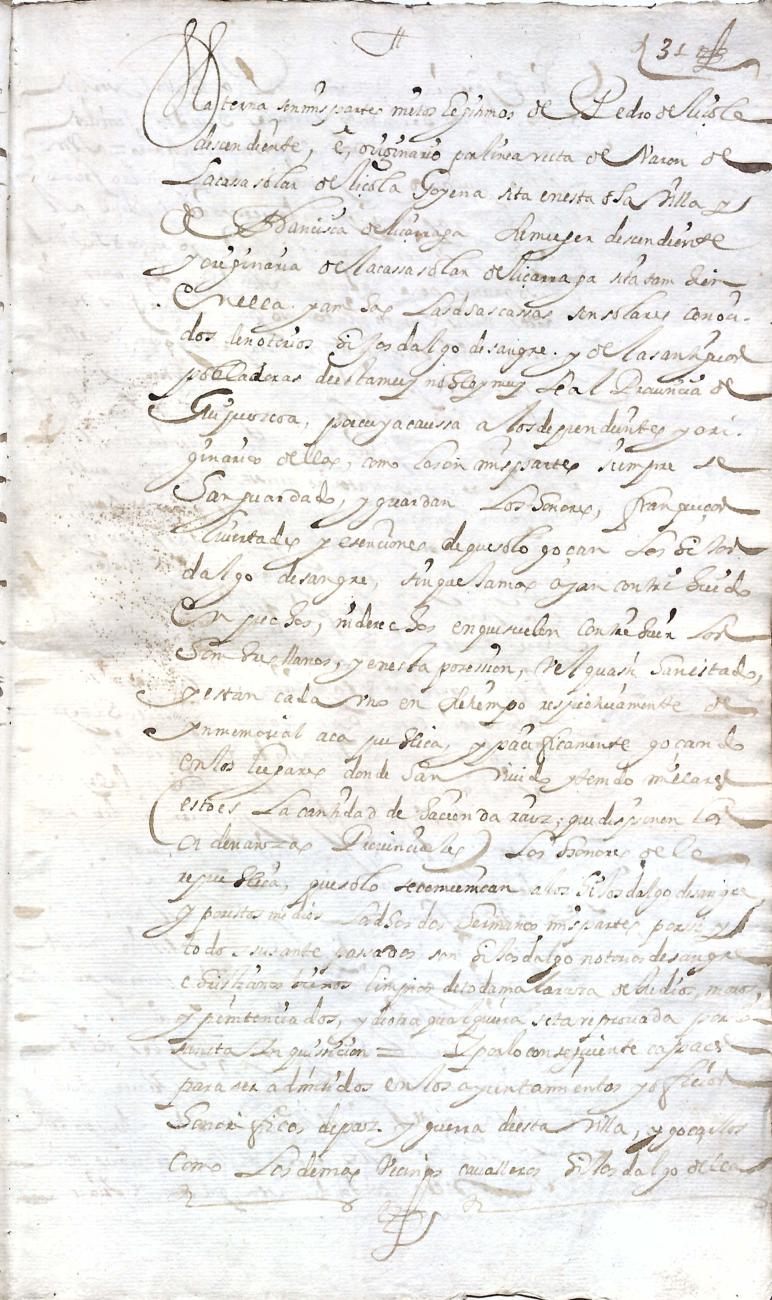 31
Materna son mis partes nietos legitimos de Pedro de liçola
descendiente, é, originario por linea recta de Varon de
La casa solar de liçola Goyena sita en esta dha Villa y
de Francisca de liçarraga su muger descendiente
y originaria de la cassa solar de liçarraga sita tambien
en ella. y ambas Las dhas cassas son solares conoci-
dos de notorios hijosdalgo de sangre. y de las antiguas
pobladoras de esta muy noble y muy Leal Provincia de
Guipuzcoa, por cuya caussa a los dependientes y ori-
ginarios de ellas, como lo son mis partes siempre se
han guardado, y guardan Los honores, franqueças
livertades y esenciones de que solo goçan Los hijos
dalgo de sangre, sin que jamas ayan contribuido
En pechos, ni derechos en que suelen contribuir Los
hombres llanos, y en esta posession, vel quasi han estado,
y estan cada uno en su tiempo respectivamente de
ynmemorial aca publica, y pacificamente goçando
en los lugares donde han vivido y tenido millares
(esto es La cantidad de hacienda raiz, que disponen las
ordenanzas Provinciales) Los honores de la
republica, que solo se comunican a los hijosdalgo de sangre
y por estos medios Los dhos dos hermanos mis partes por si y
todos sus ante passados son hijosdalgo notorios de sangre
e christianos viejos limpios de toda mala raza de Judios, moros
y penitenciados, y de otra qualquiera seta reprovada por la
santa Inquisicion = Y por lo conseguiente capaces
para ser admitidos en los ayuntamientos y oficios
honorificos de paz y guerra de esta Villa, y goçarlos
como Los demas Vecinos cavalleros hijosdalgo de ella